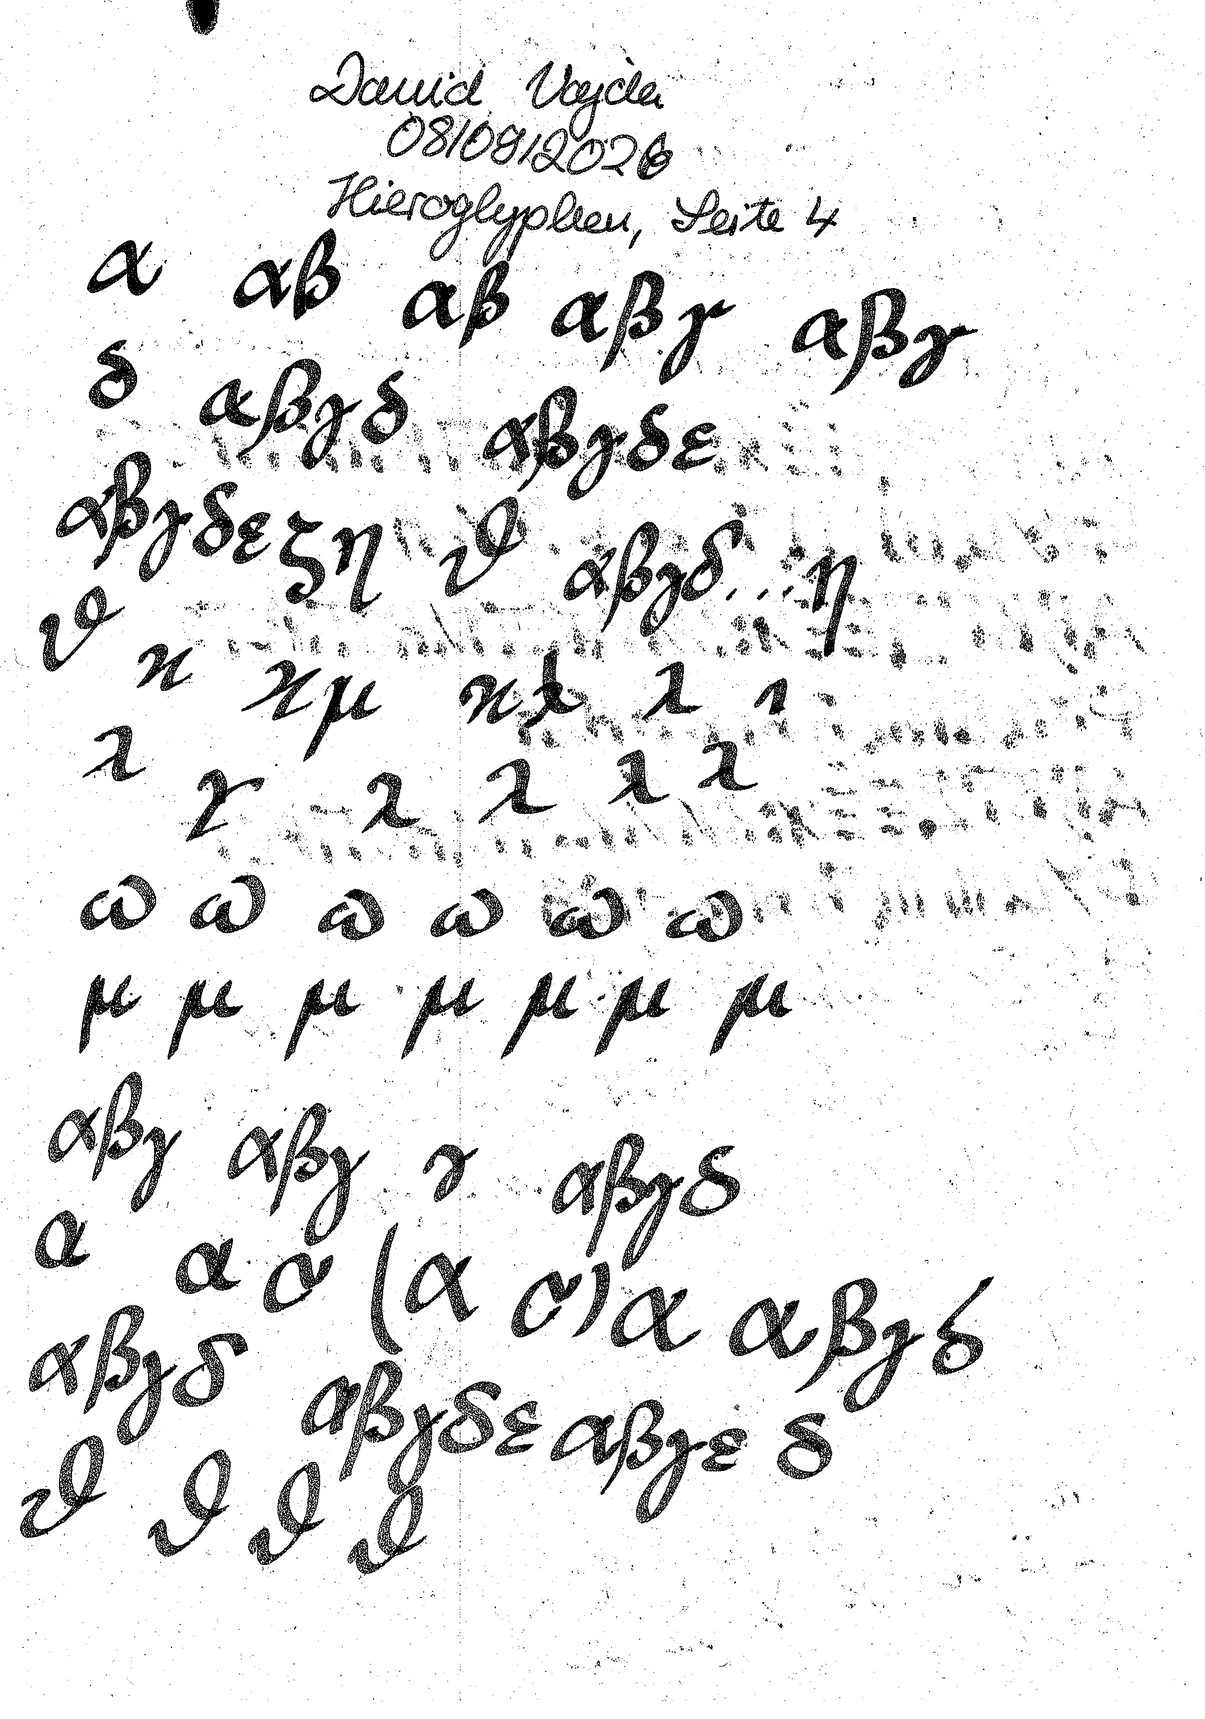 David Vajda
08/09/2026
Hieroglyphen, Seite 4
α αβ αβ αβγ αβγ
δ αβγδ αβγδε
αβγδεζη ϑ αβγδ...η
ϑ ϰ ϰμ ϰλ λ
λ γ λ λ λ λ
ω ω ω ω ω ω
μ μ μ μ μ μ μ
αβγ αβγ γ αβγδ
α α α (α α) α αβγδ
αβγδ αβγδε αβγε δ
ϑ ϑ ϑ ϑ